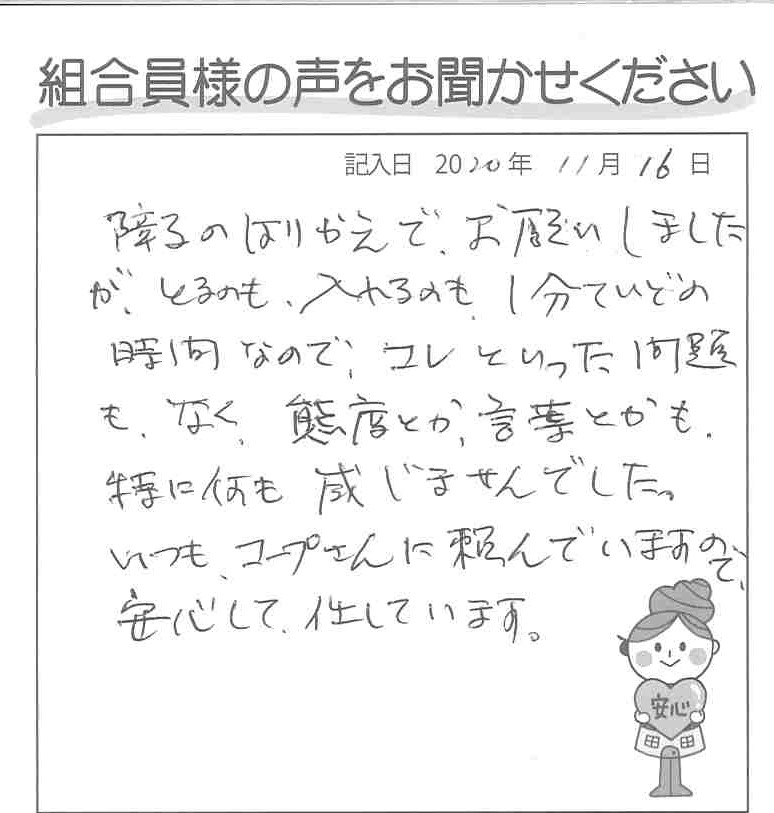 組合員様の声をお聞かせください
記入日 2020年 11月 16日
障子のはりかえで、お願いしました
が、とるのも、入れるのも、1分ていどの
時間なので、コレといった問題
も、なく、態度とか、言葉とかも、
特に何も感じませんでした。
いつも、コープさんに頼んでいますので、
安心して、任しています。
安心